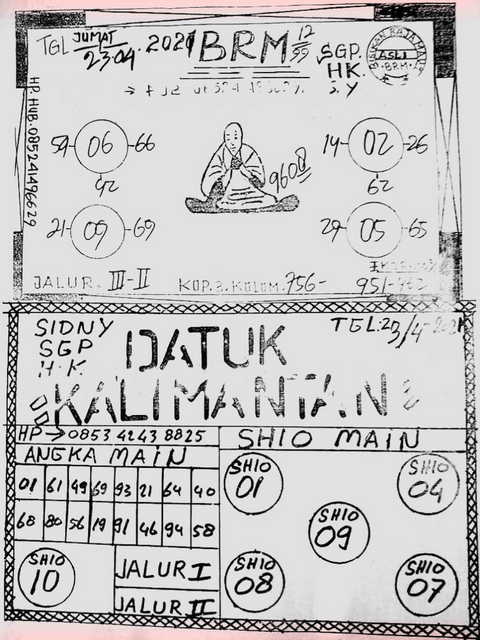 TGL JUMAT 23.04.2021
BRM 12/59
SGP.
HK.
S.Y
ASLI
BRM
HP. HUB. 085241496629
59 06 66
42
14 02 26
62
960
21 09 69
29 05 65
JALUR. III-II
KOP.3.KOLOM.756-
951-
SIDNY
SGP
H.K
TGL:23/4-2021
DATUK
KALIMANTAN
HP→0853 4243 8825
ANGKA MAIN
01 61 49 69 93 21 64 40
68 80 56 19 91 46 94 58
SHIO 10
JALUR I
JALUR II
SHIO MAIN
SHIO 01
SHIO 04
SHIO 09
SHIO 08
SHIO 07